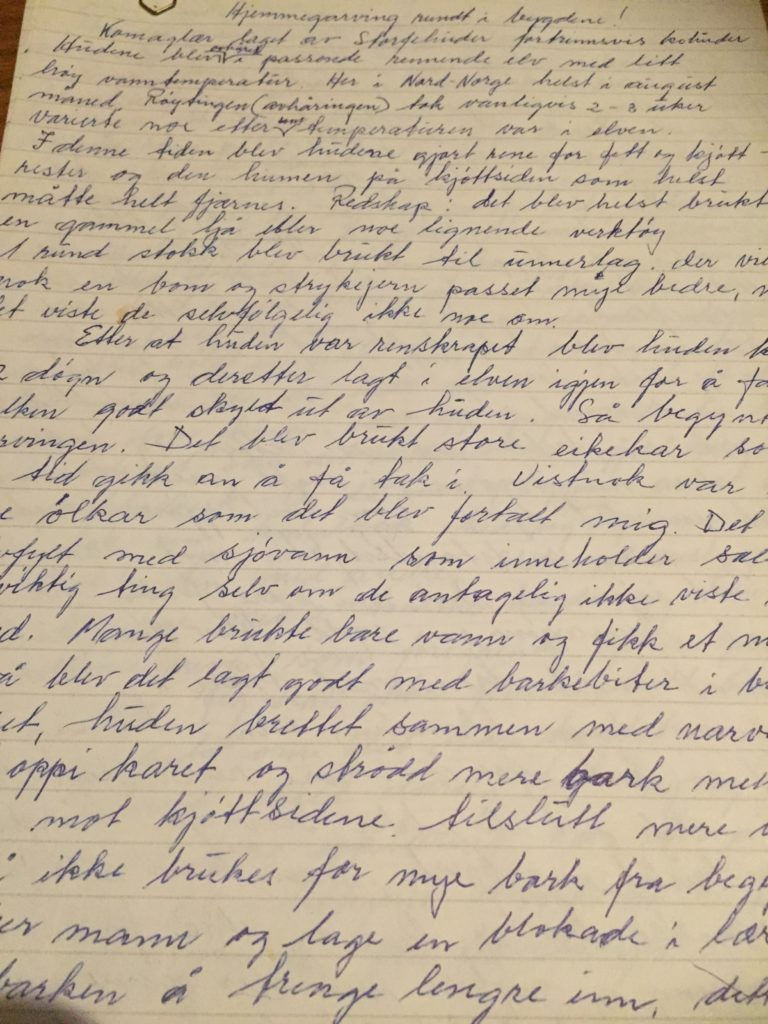 Hjemmegarving rundt i bygdene!
Komaglær laget av Storfehuder fortrinnsvis kuhuder
Hudene blev i passende rennende elv med litt
høy vanntemperatur. Her i Nord-Norge helst i august
måned. Røytingen (avhåringen) tok vanligvis 2-3 uker
varierte noe etter temperaturen var i elven.
I denne tiden blev hudene gjort rene for fett og kjøtt-
rester og den hinnen på kjøttsiden som helst
måtte helt fjærnes. Redskap: det blev helst brukt
en gammel ljå eller noe lignende verktøy
1 rund stokk blev brukt til unnerlag. der
nok en bom og strykejern passet mye bedre,
et viste de selvfølgelig ikke noe om.
Etter at huden var renskrapet blev huden
døgn og deretter lagt i elven igjen for å
godt skyldt ut av huden. Så begyn
rvingen. Det blev brukt store eikekar so
tid gikk an å få tak i. Vistnok var
ølkar som det blev fortalt mig. Det
fylt med sjøvann som inneholder sal
viktig ting selv om de antagelig ikke viste
ed. Mange brukte bare vann og fikk et
å blev det lagt godt med barkebiter i
et, huden brettet sammen med narv
oppi karet og strødd mere bark
mot kjøttsidene. tilslutt mere
ikke brukes for mye bark fra beg
er mann og lage en blokade i lær
barken å trenge lengre inn, dett